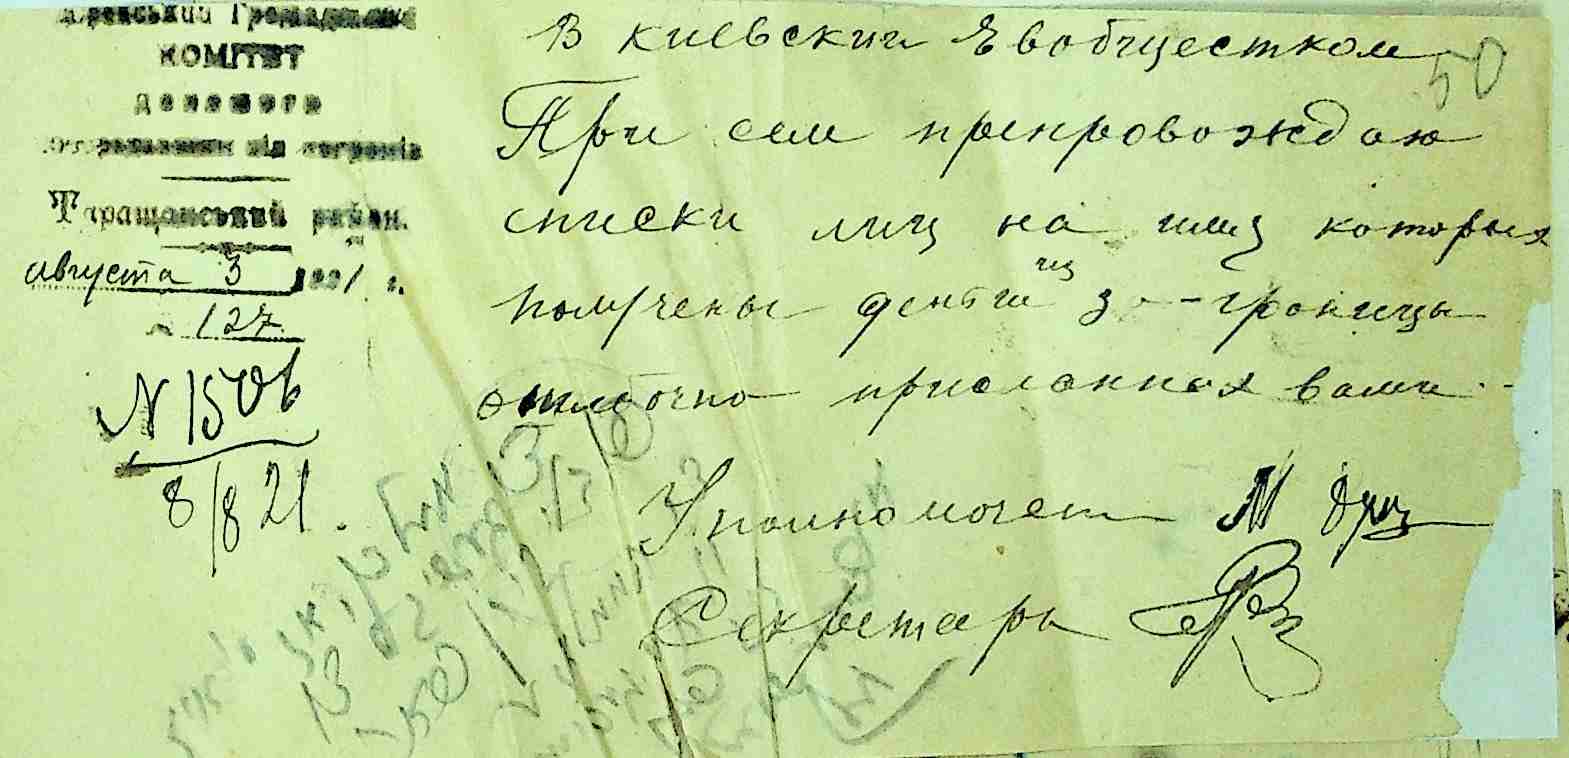 КОМІТЕТ
допомоги
від погромів
Таращанський район.
августа 3 1921 г.
127
N 1506
8/8 21.
50
В киевский Евобщестком
При сем препровождаю
списки лиц на имя которых
получены деньги из за-границы
ошибочно присланная вами
Уполномочен М
Секретарь